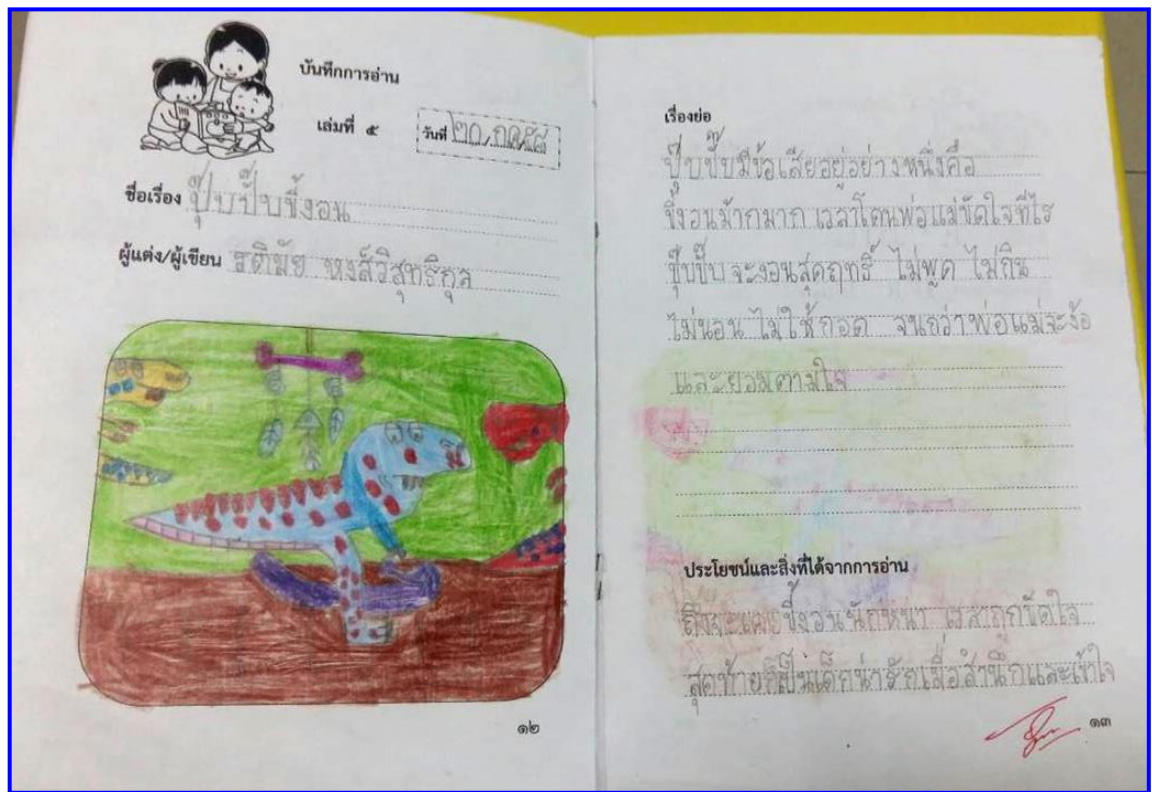 บันทึกการอ่าน
เล่มที่ ๕
วันที่ ๒๐
ชื่อเรื่อง ปุ๊บปั๊บขี้งอน
ผู้แต่ง/ผู้เขียน รติมัย หงส์วิสุทธิกุล
๑๒
เรื่องย่อ
ปุ๊บปั๊บมีข้อเสียอยู่อย่างหนึ่งคือ
ขี้งอนม้ากมาก เวลาโดนพ่อแม่ขัดใจทีไร
ปุ๊บปั๊บจะงอนสุดฤทธิ์ ไม่พูด ไม่กิน
ไม่นอน ไม่ให้กอด จนกว่าพ่อแม่จะง้อ
และยอมตามใจ
ประโยชน์และสิ่งที่ได้จากการอ่าน
ถึงจะแสนขี้งอนนักหนา เวลาถูกขัดใจ
สุดท้ายก็เป็นเด็กน่ารักเมื่อสำนึกและเข้าใจ
๑๓